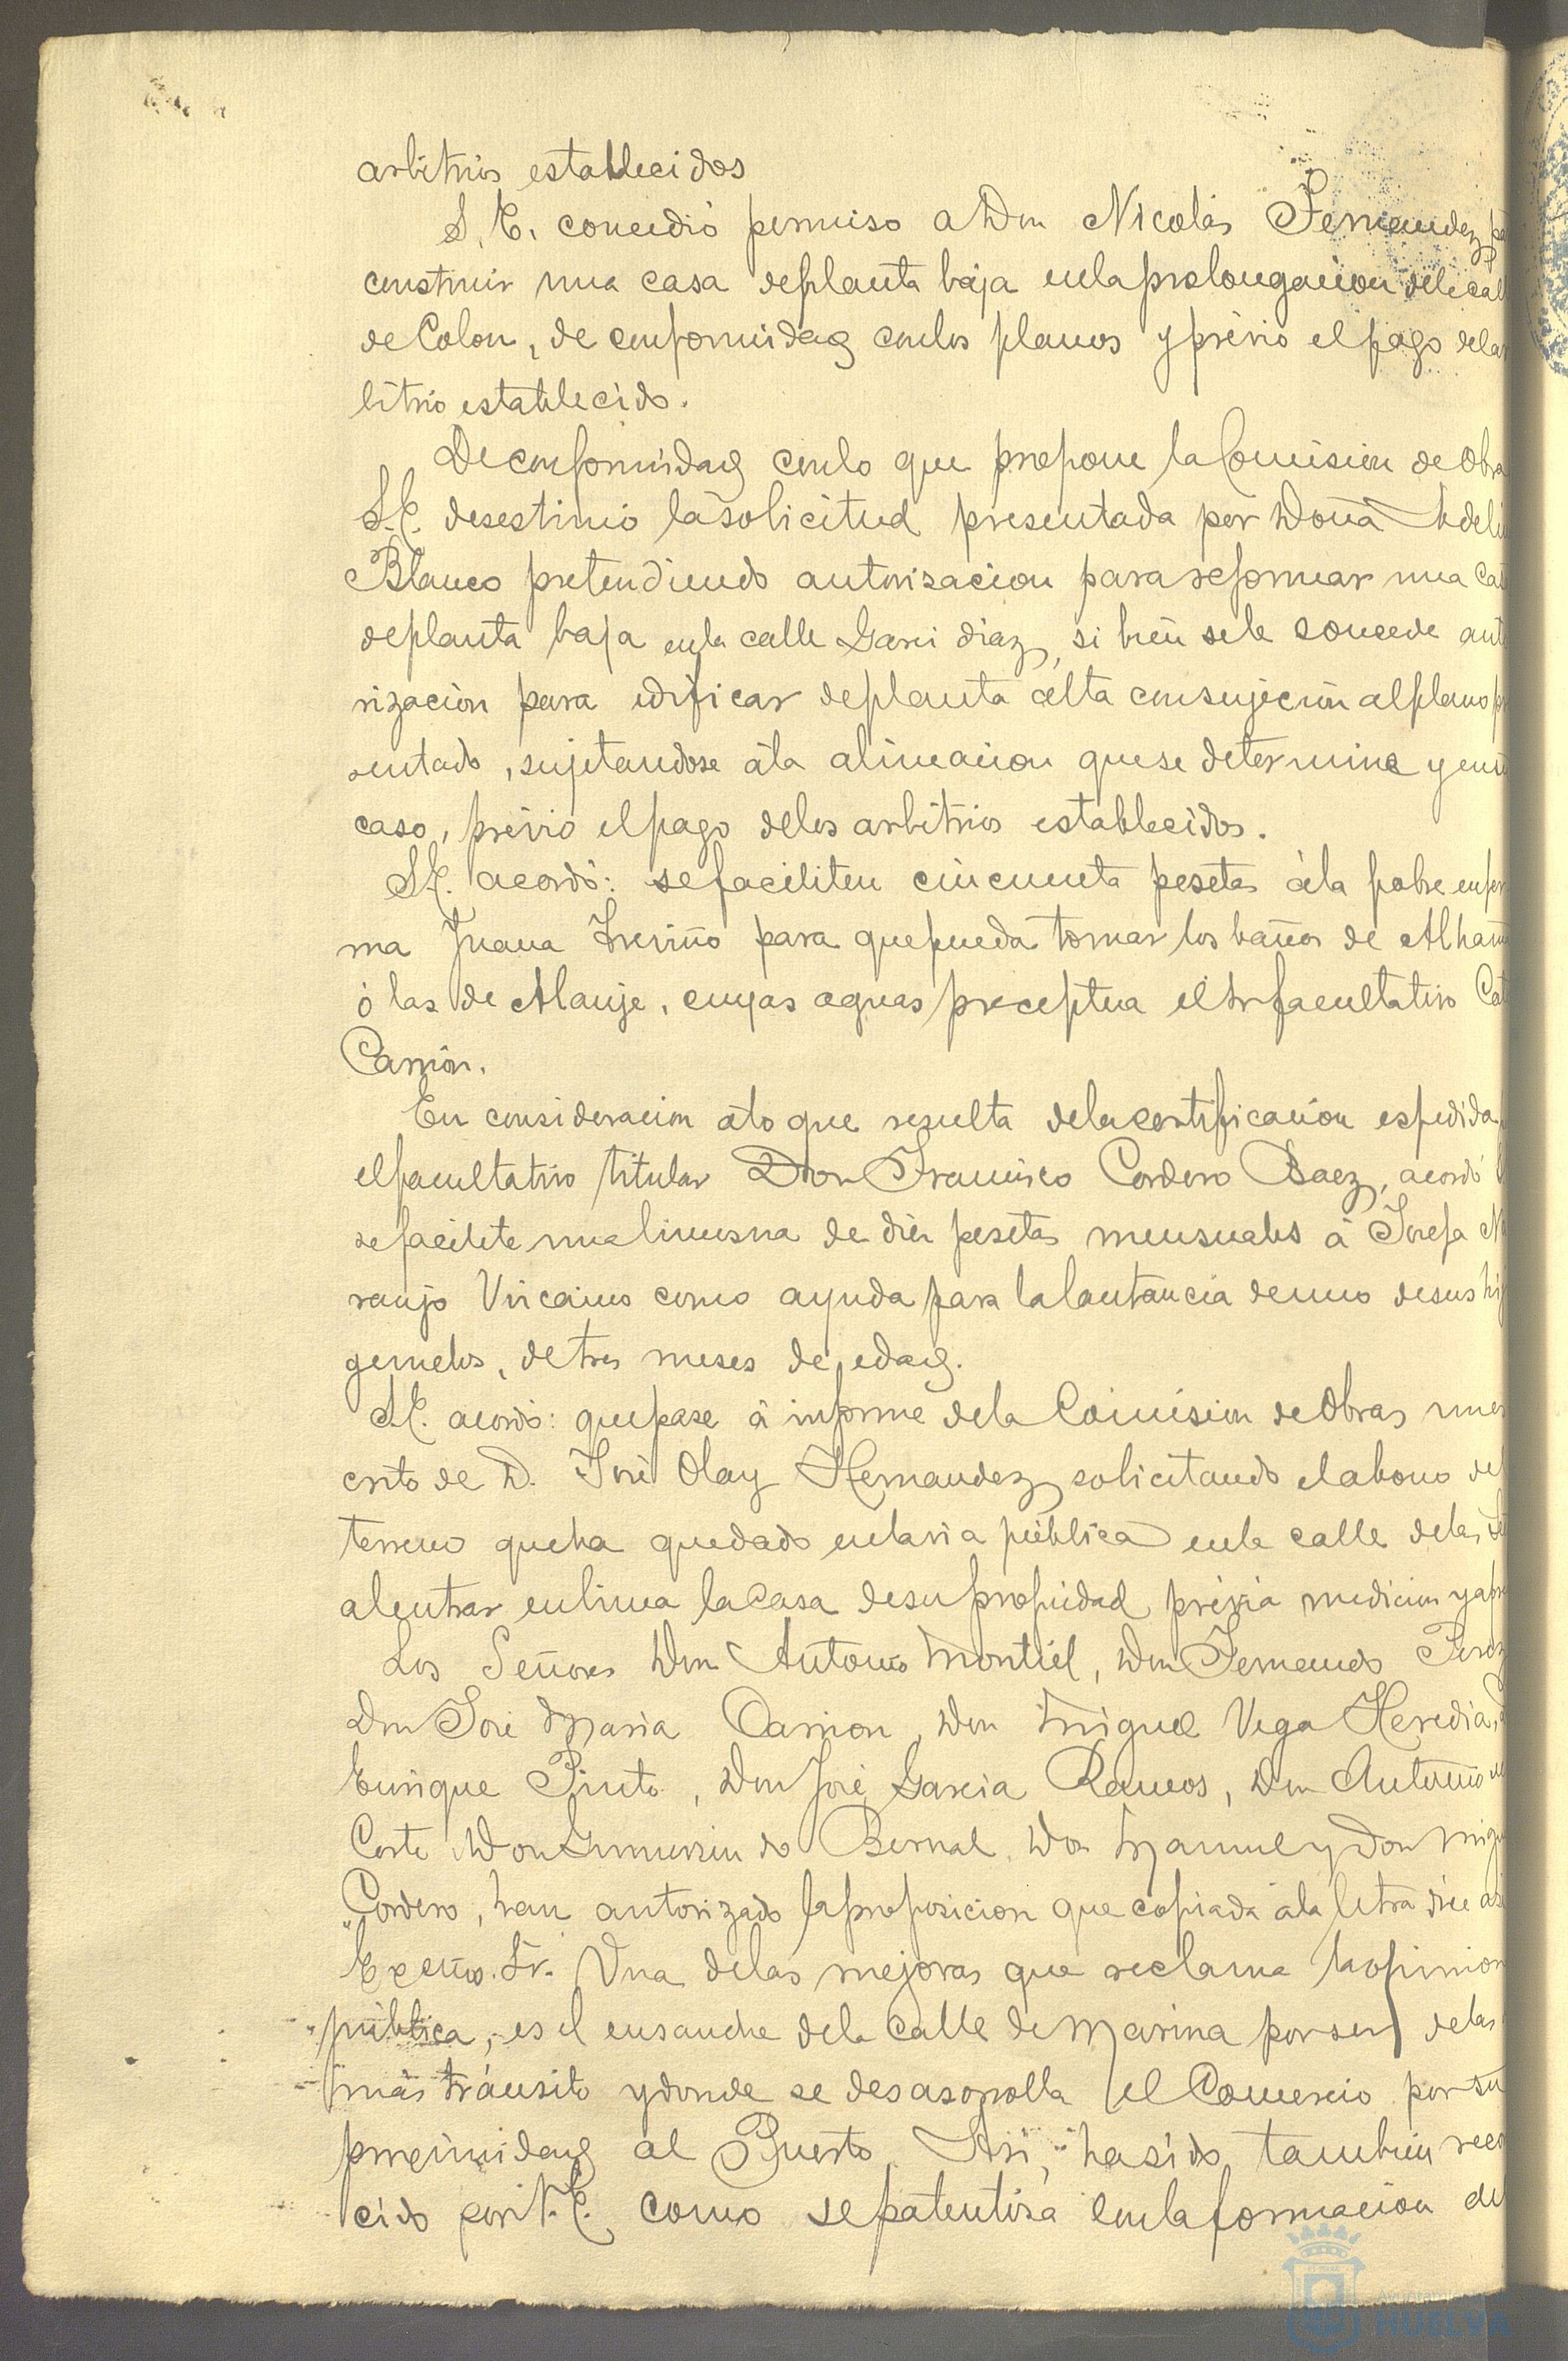 arbitrios establecidos
S. E. concedió permiso a Don Nicolás Fernandez pa
construir una casa de planta baja en la prolongacion de la call
de Colon, de conformidad con los planos y prévio el pago del ar
bitrio establecido.
De conformidad con lo que propone la Comision de Obra
S.E. desestimó la solicitud presentada por Doña Adeli
Blanco pretendiendo autorizacion para reformar una cas
de planta baja en la calle Garci diaz, si bien se le concede aut
rización para edificar de planta alta con sujeción al plano pr
sentado, sujetandose á la alineacion que se determine y en su
caso, prévio el pago de los arbitrios establecidos.
S.E. acordó: se faciliten cincuenta pesetas á la pobre enfer
ma Juana Treviño para que pueda tomar los baños de Alham
ó las de Alanje, cuyas aguas preceptua el Sr facultativo
Carrión.
En consideracion á lo que resulta de la certificacion espedida
el facultativo titular Don Francisco Cordero Baez, acordó
se facilite una limosna de diez pesetas mensuales á Josefa N
ranjo Vizcaino como ayuda para la lactancia de uno de sus hij
gemelos, de tres meses de edad.
S.E. acordó: que pase á informe de la Comision de Obras un es
crito de D. José Olay Hernandez solicitando el abono del
terreno que ha quedado en la via pública en la calle de las
al entrar en linea la casa de su propiedad, prévia medicion y apre
Los Señores Don Antonio Montiel, Don Fernando Perez
Don José Maria Carrion, Don Miguel Vega Heredia,
Enrique Pinto, Don José Garcia Ramos, Don Antonio
Corte Don Gumersindo Bernal, Don Manuel y Don Migu
Cordero, han autorizado la proposicion que copiada á la letra dice asi
"Excmo. Sr. Una de las mejoras que reclama la opinion
pública, es el ensanche de la Calle de Marina por ser de las
más tránsito y donde se desasorrolla el Comercio por su
proximidad al Puerto. Asi, ha sido tambien reco
cido por V.E. como se patentiza con la formacion de
Ayuntamiento
HUELVA